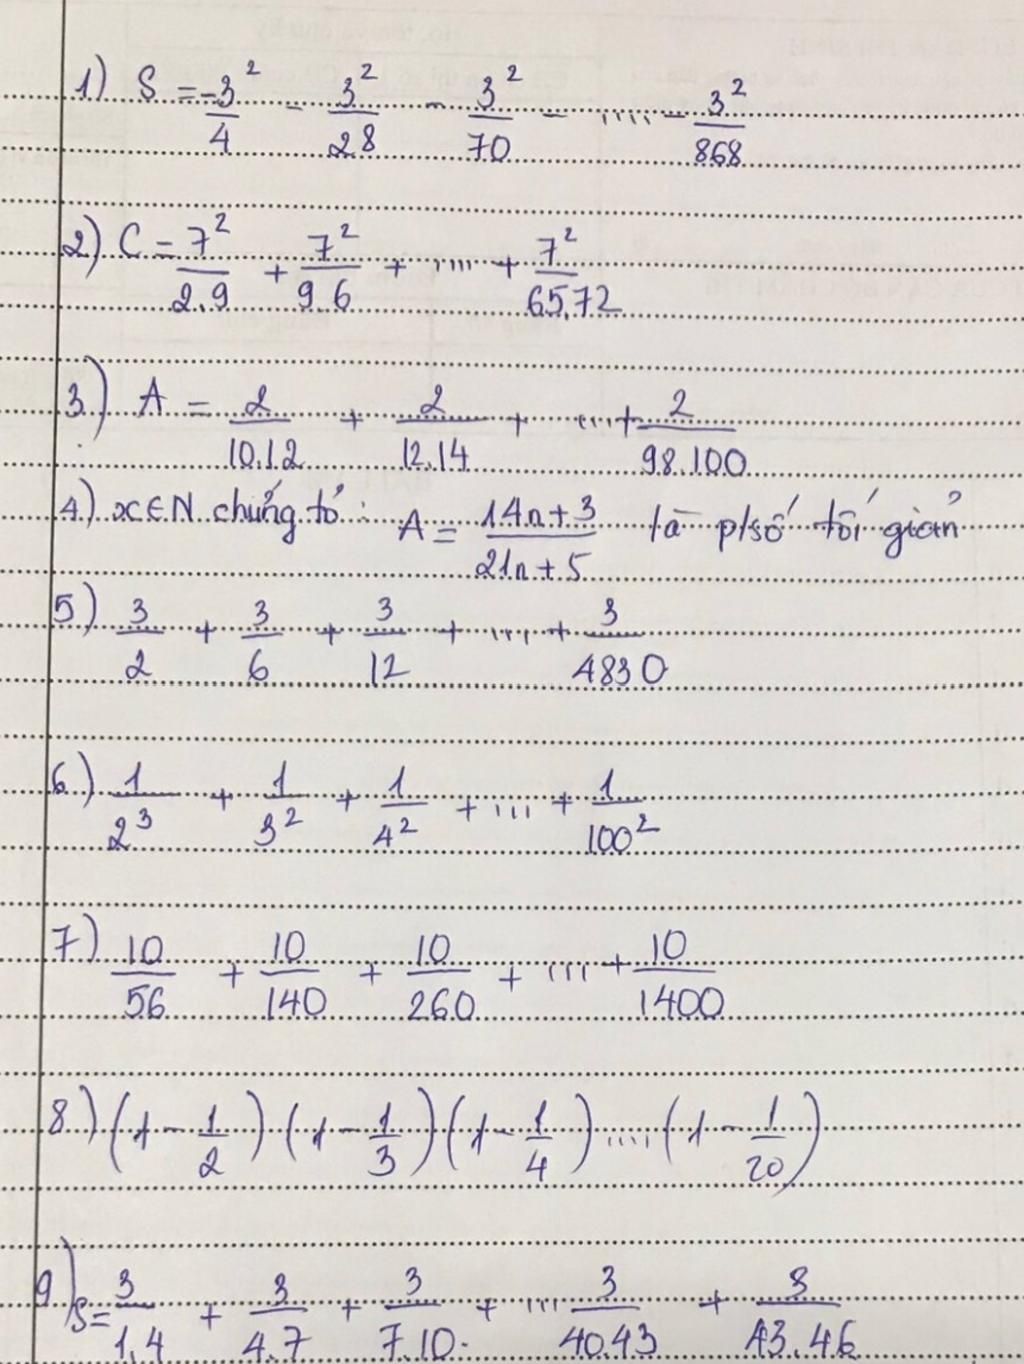 1) S = -3²/4 - 3²/28 - 3²/70 - ..... - 3²/868
2) C = 7²/2.9 + 7²/9.6 + ..... + 7²/65.72
3) A = 2/10.12 + 2/12.14 + ....+ 2/98.100
4) x∈N chứng tỏ: A = 14n+3/21n+5 là p/số tối giản
5) 3/2 + 3/6 + 3/12 + .... + 3/4830
6) 1/2³ + 1/3² + 1/4² + ... + 1/100²
7) 10/56 + 10/140 + 10/260 + .... + 10/1400
8) (1 - 1/2) (1 - 1/3) (1 - 1/4) ..... (1 - 1/20)
9) S = 3/1.4 + 3/4.7 + 3/7.10. + ... 3/40.43 + 3/43.46